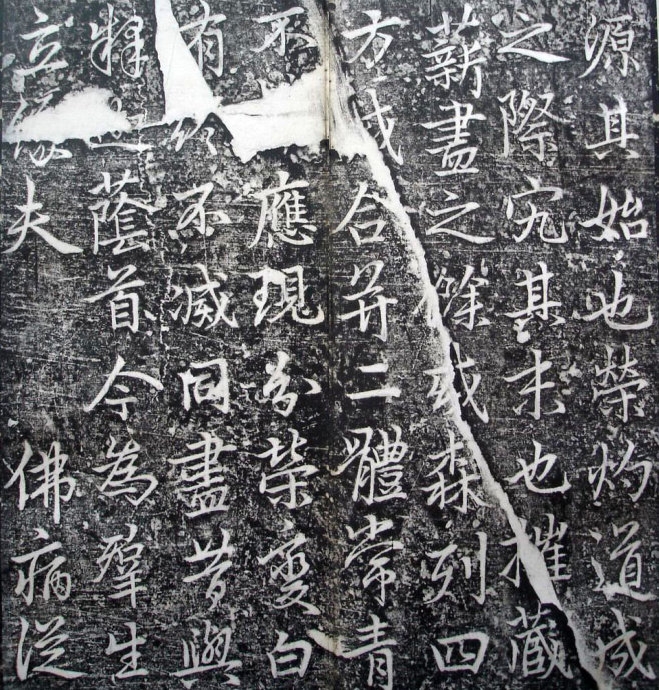 源其始也榮灼道成
之際究其末也摧藏
薪盡之餘或森列四
方或合并二體常青
不應現分榮變白
有終不滅同盡昔與
釋迦蔭首今為羣生
立緣夫 佛病從